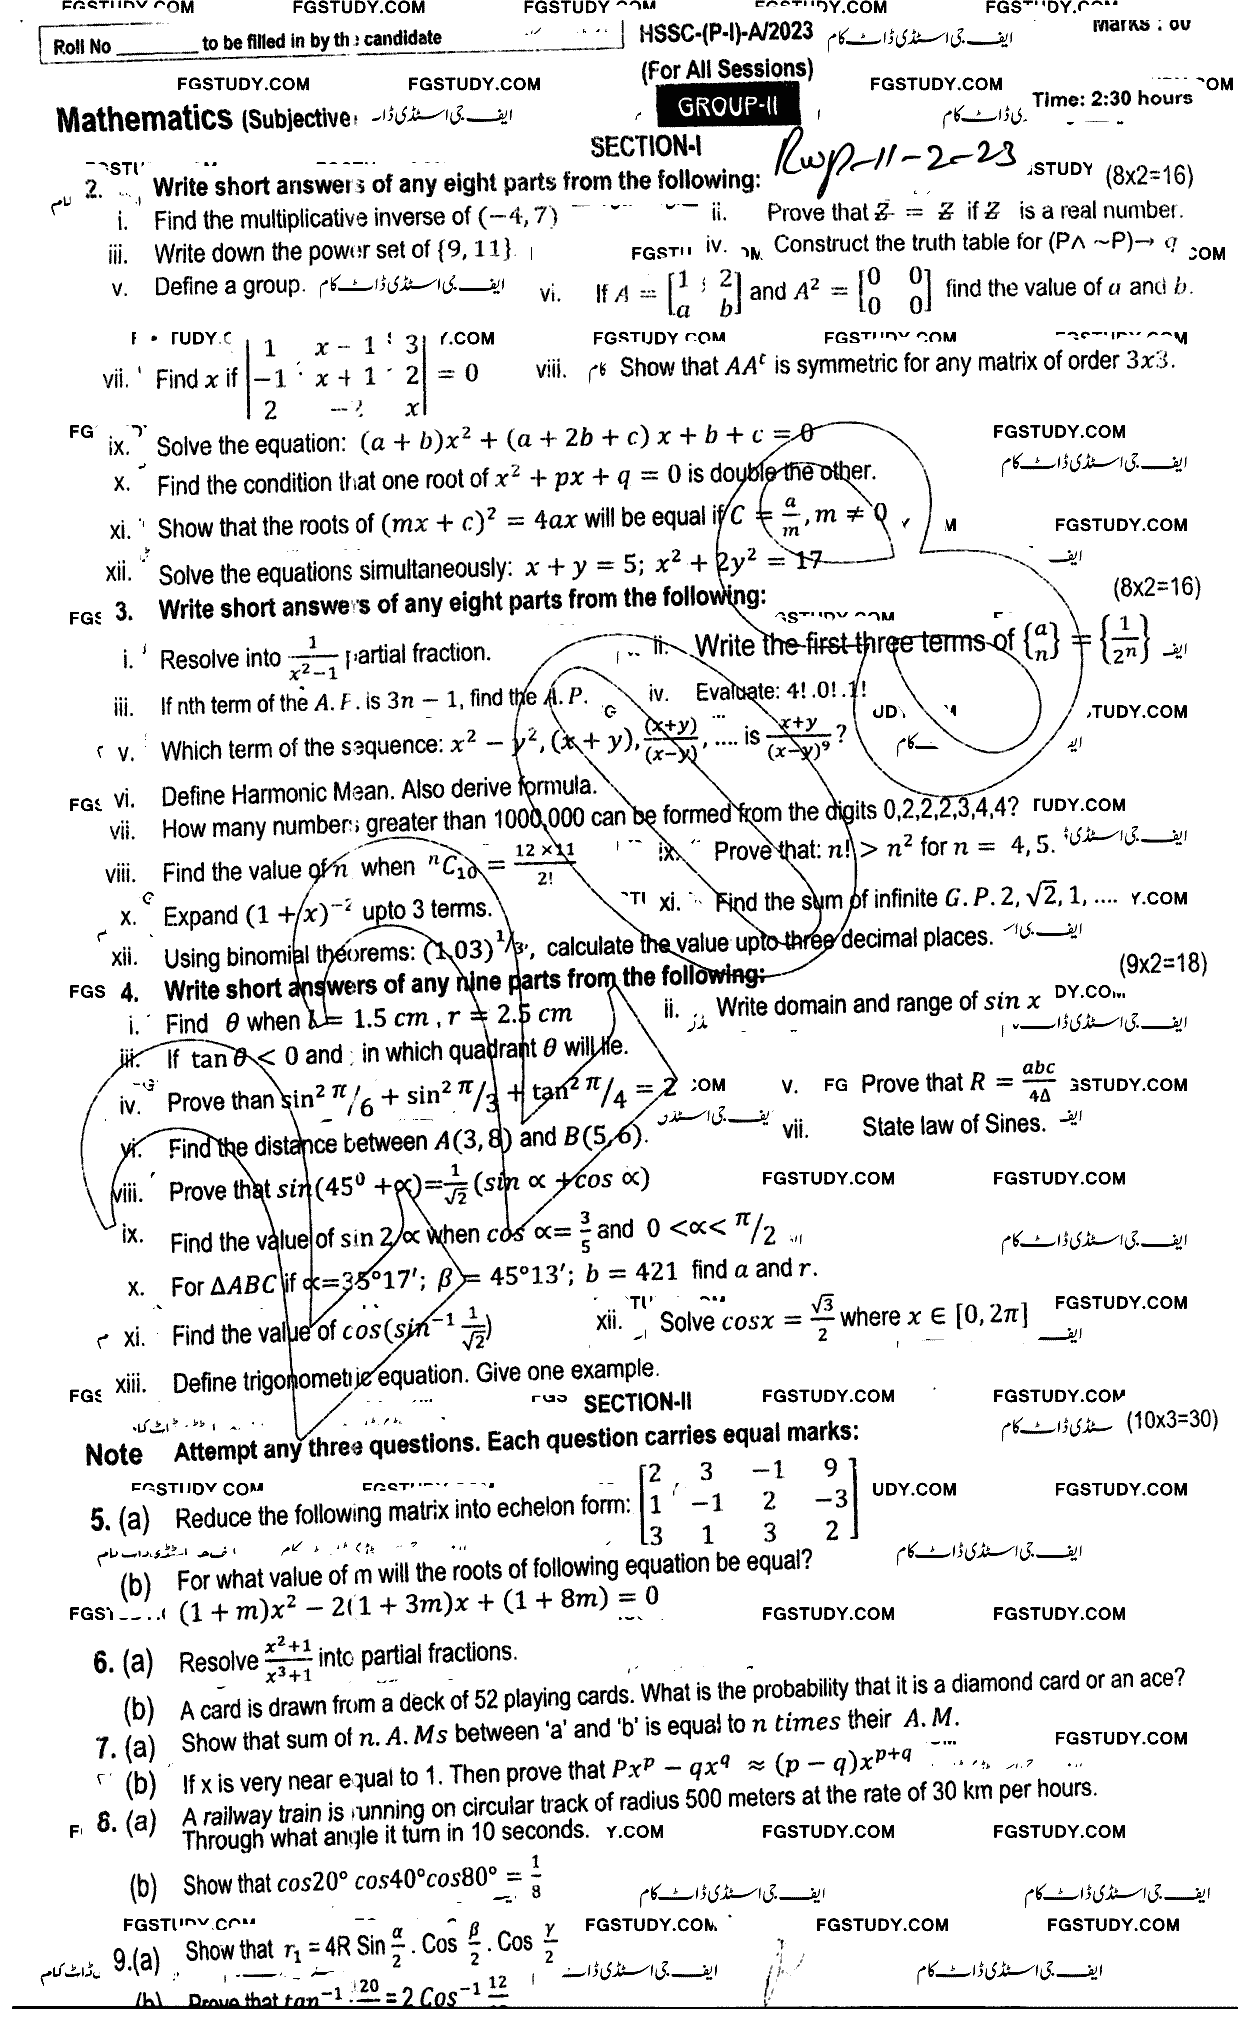 FGSTUDY.COM FGSTUDY.COM FGSTUDY.COM FGSTUDY.COM
Roll No ________ to be filled in by the candidate HSSC-(P-I)-A/2023 ایف جی اسٹڈی ڈاٹ کام Marks : 80
(For All Sessions)
FGSTUDY.COM FGSTUDY.COM FGSTUDY.COM
Mathematics (Subjective GROUP-II Time: 2:30 hours
SECTION-I Rwp-11-2-23
2. Write short answers of any eight parts from the following: (8x2=16)
i. Find the multiplicative inverse of (−4, 7) ii. Prove that Z̄ = Z if Z is a real number.
iii. Write down the power set of {9, 11} iv. Construct the truth table for (P∧ ~P)→ q
v. Define a group. ایف جی اسٹڈی ڈاٹ کام vi. If A = [1 2; a b] and A² = [0 0; 0 0] find the value of a and b.
FGSTUDY.COM FGSTUDY.COM
vii. Find x if |1 x − 1 3; −1 x + 1 2; 2 −2 x| = 0 viii. Show that AAᵗ is symmetric for any matrix of order 3x3.
ix. Solve the equation: (a + b)x² + (a + 2b + c) x + b + c = 0 FGSTUDY.COM
x. Find the condition that one root of x² + px + q = 0 is double the other. ایف جی اسٹڈی ڈاٹ کام
xi. Show that the roots of (mx + c)² = 4ax will be equal if C = a/m, m ≠ 0 FGSTUDY.COM
xii. Solve the equations simultaneously: x + y = 5; x² + 2y² = 17
3. Write short answers of any eight parts from the following: (8x2=16)
i. Resolve into 1/(x²−1) partial fraction. ii. Write the first three terms of {a/n} = {1/2ⁿ}
iii. If nth term of the A. P. is 3n − 1, find the A. P. iv. Evaluate: 4! .0! .1!
v. Which term of the sequence: x² − y², (x + y), (x+y)/(x−y), .... is (x+y)/(x−y)⁹ ?
vi. Define Harmonic Mean. Also derive formula.
vii. How many numbers greater than 1000,000 can be formed from the digits 0,2,2,2,3,4,4?
viii. Find the value of n when ⁿC₁₀ = 12 ×11/2! ix. Prove that: n! > n² for n = 4, 5. ایف جی اسٹڈی
x. Expand (1 + x)⁻² upto 3 terms. xi. Find the sum of infinite G. P. 2, √2, 1, ....
xii. Using binomial theorems: (1.03)^1/3, calculate the value upto three decimal places.
4. Write short answers of any nine parts from the following: (9x2=18)
i. Find θ when l = 1.5 cm , r = 2.5 cm ii. Write domain and range of sin x
iii. If tan θ < 0 and in which quadrant θ will lie. ایف جی اسٹڈی ڈاٹ کام
iv. Prove than sin² π/6 + sin² π/3 + tan² π/4 = 2 v. Prove that R = abc/4Δ
vi. Find the distance between A(3, 8) and B(5, 6). vii. State law of Sines.
viii. Prove that sin(45⁰ +∝)=1/√2 (sin ∝ +cos ∝) FGSTUDY.COM FGSTUDY.COM
ix. Find the value of sin 2 ∝ when cos ∝= 3/5 and 0 <∝< π/2 ایف جی اسٹڈی ڈاٹ کام
x. For ΔABC if ∝=35°17′; β = 45°13′; b = 421 find a and r.
xi. Find the value of cos(sin⁻¹ 1/√2) xii. Solve cosx = √3/2 where x ∈ [0, 2π] FGSTUDY.COM
xiii. Define trigonometric equation. Give one example.
SECTION-II FGSTUDY.COM FGSTUDY.COM
Note Attempt any three questions. Each question carries equal marks: (10x3=30)
FGSTUDY.COM FGSTUDY.COM
5. (a) Reduce the following matrix into echelon form: [2 3 −1 9; 1 −1 2 −3; 3 1 3 2]
ایف جی اسٹڈی ڈاٹ کام ایف جی اسٹڈی ڈاٹ کام
(b) For what value of m will the roots of following equation be equal?
(1 + m)x² − 2(1 + 3m)x + (1 + 8m) = 0 FGSTUDY.COM FGSTUDY.COM
6. (a) Resolve (x²+1)/(x³+1) into partial fractions.
(b) A card is drawn from a deck of 52 playing cards. What is the probability that it is a diamond card or an ace?
7. (a) Show that sum of n. A. Ms between 'a' and 'b' is equal to n times their A. M.
FGSTUDY.COM
(b) If x is very near equal to 1. Then prove that Pxᵖ − qx^q ≈ (p − q)x^(p+q)
8. (a) A railway train is running on circular track of radius 500 meters at the rate of 30 km per hours.
Through what angle it turn in 10 seconds. FGSTUDY.COM FGSTUDY.COM
(b) Show that cos20° cos40°cos80° = 1/8
ایف جی اسٹڈی ڈاٹ کام ایف جی اسٹڈی ڈاٹ کام
FGSTUDY.COM FGSTUDY.COM FGSTUDY.COM FGSTUDY.COM
9.(a) Show that r₁ = 4R Sin α/2 . Cos β/2 . Cos γ/2
ایف جی اسٹڈی ڈاٹ کام
(b) Prove that tan⁻¹ 20 = 2 Cos⁻¹ 12